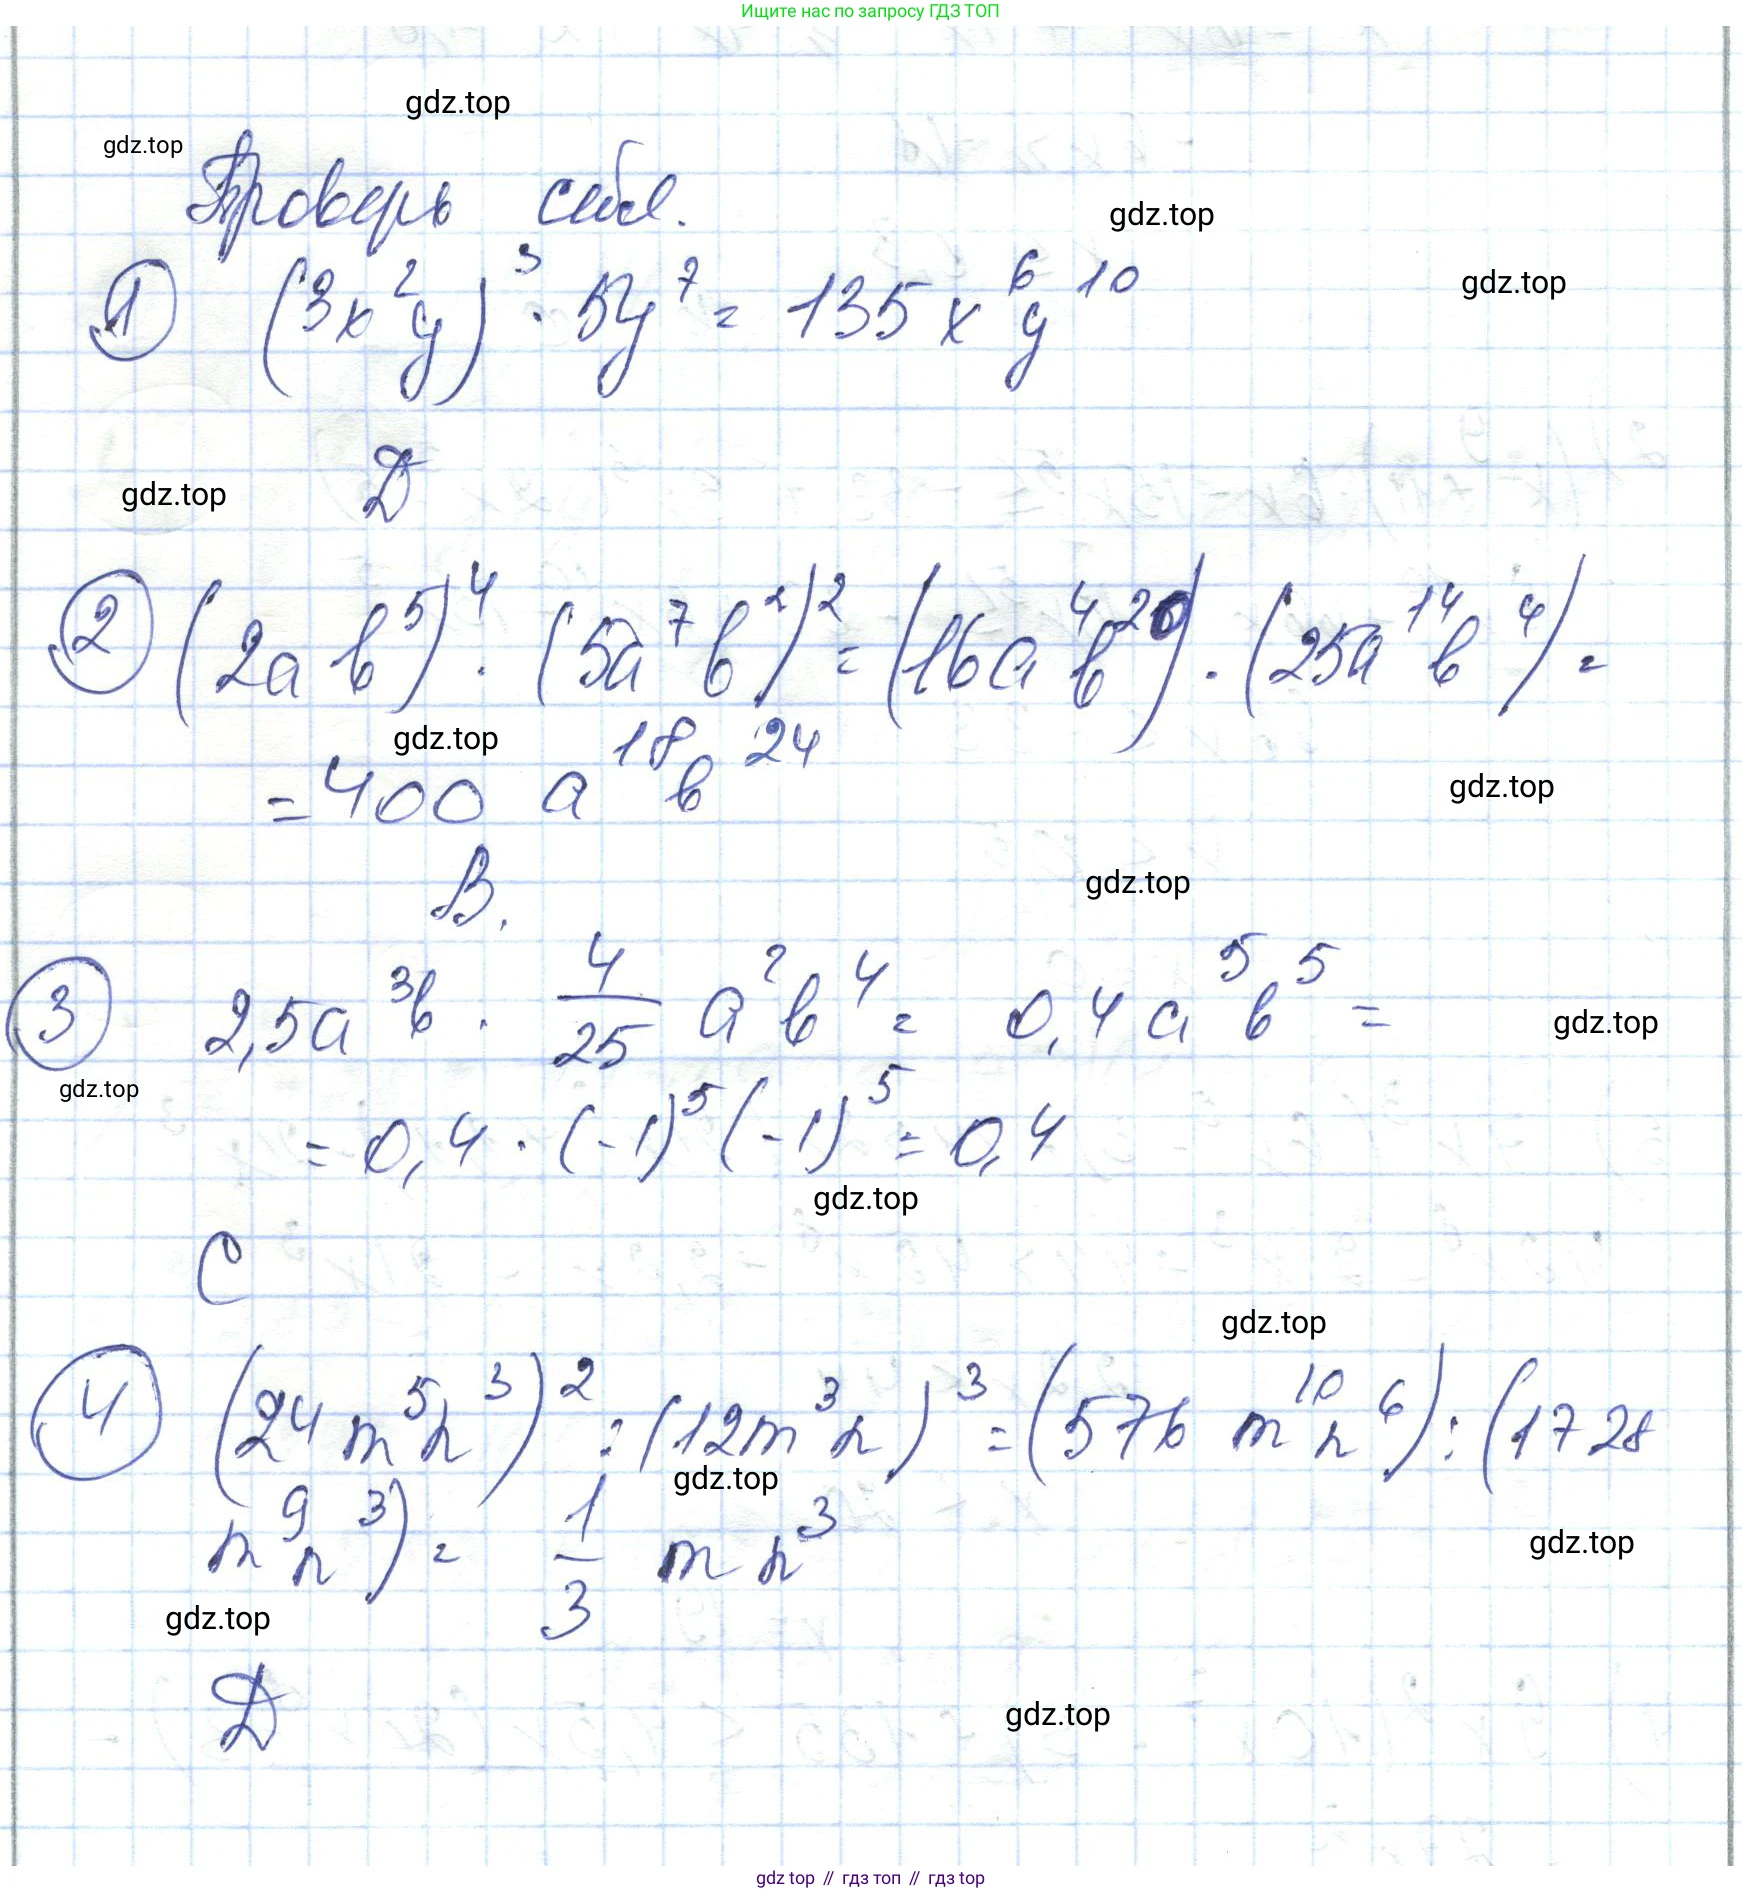 Ищите нас по запросу ГДЗ ТОП
gdz.top
gdz.top
Проверь себя.
gdz.top
① (3x²y)³ · 5y⁷ = 135x⁶y¹⁰
gdz.top
D
gdz.top
② (2ab⁵)⁴ · (5a⁷b²)² = (16a⁴b²⁰) · (25a¹⁴b⁴) =
gdz.top
= 400 a¹⁸b²⁴
gdz.top
B.
gdz.top
③ 2,5a³b · 4/25 a²b⁴ = 0,4a⁵b⁵ =
gdz.top
gdz.top
= 0,4 · (-1)⁵(-1)⁵ = 0,4
gdz.top
C
gdz.top
④ (24m⁵n³)² : (12m³n)³ = (576 m¹⁰n⁶) : (1728
gdz.top
m⁹n³) = 1/3 mn³
gdz.top
gdz.top
D
gdz.top
gdz top // гдз топ // гдз top